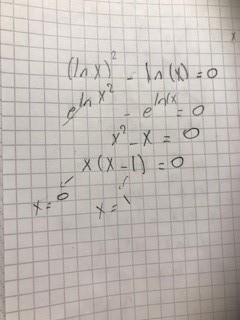 (ln x)² - ln(x) = 0
e^ln x² - e^ln(x = 0
x² - x = 0
x(x-1) = 0
x = 0 x = 1